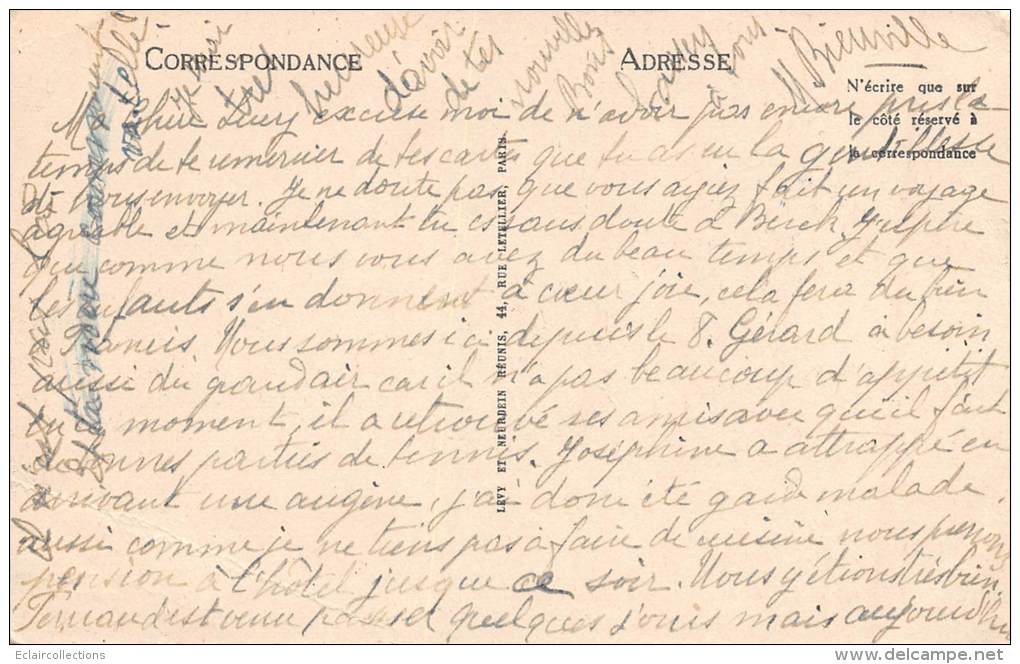 CORRESPONDANCE
ADRESSE
N'écrire que sur
le côté réservé à
la correspondance
Ma chère Lucy excuse moi de n'avoir pas encore pris le
temps de te remercier de tes cartes que tu as eu la gentillesse
de nous envoyer. Je ne doute pas que vous ayiez fait un voyage
agréable et maintenant tu es sans doute à Berck. J'espère
que comme nous vous avez du beau temps et que
les enfants s'en donnent à cœur joie, cela fera du bien
à Francis. Nous sommes ici depuis le 8. Gérard a besoin
aussi du grand air car il n'a pas beaucoup d'appétit
en ce moment, il a retrouvé ses amis avec qui il fait
de bonnes parties de tennis. Joséphine a attrappé en
arrivant une angine, j'ai donc été garde malade,
aussi comme je ne tiens pas à faire de cuisine nous prenons
pension à l'hôtel jusque ce soir. Nous y étions très bien.
Fernand est venu passer quelques jours mais aujourd'hui
va-t-elle
très heureuse
d'avoir
de tes
nouvelles
Bons baisers
à vous
M Bienville
LEVY ET NEURDEIN RÉUNIS, 44, RUE LETELLIER, PARIS.
Eclaircollections
delcampe.net